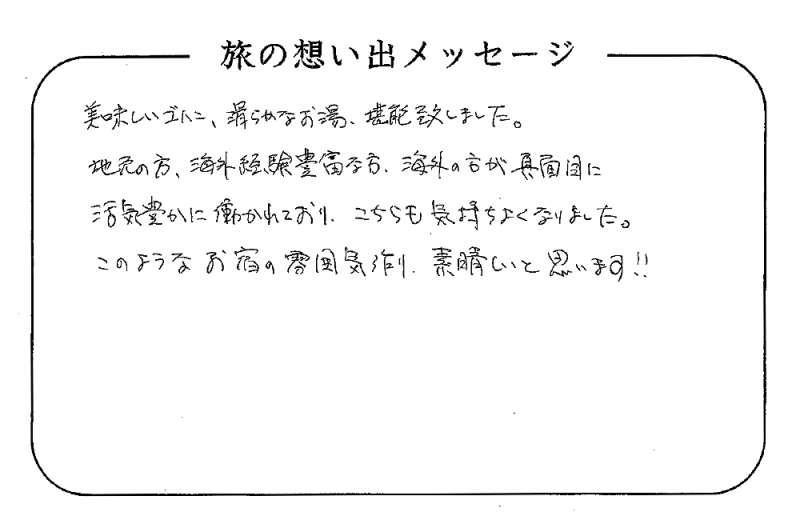 旅の想い出メッセージ
美味しいゴハン、滑らかなお湯、堪能致しました。
地元の方、海外経験豊富な方、海外の方が真面目に
活気豊かに働かれており、こちらも気持ちよくなりました。
このようなお宿の雰囲気作り、素晴しいと思います!!